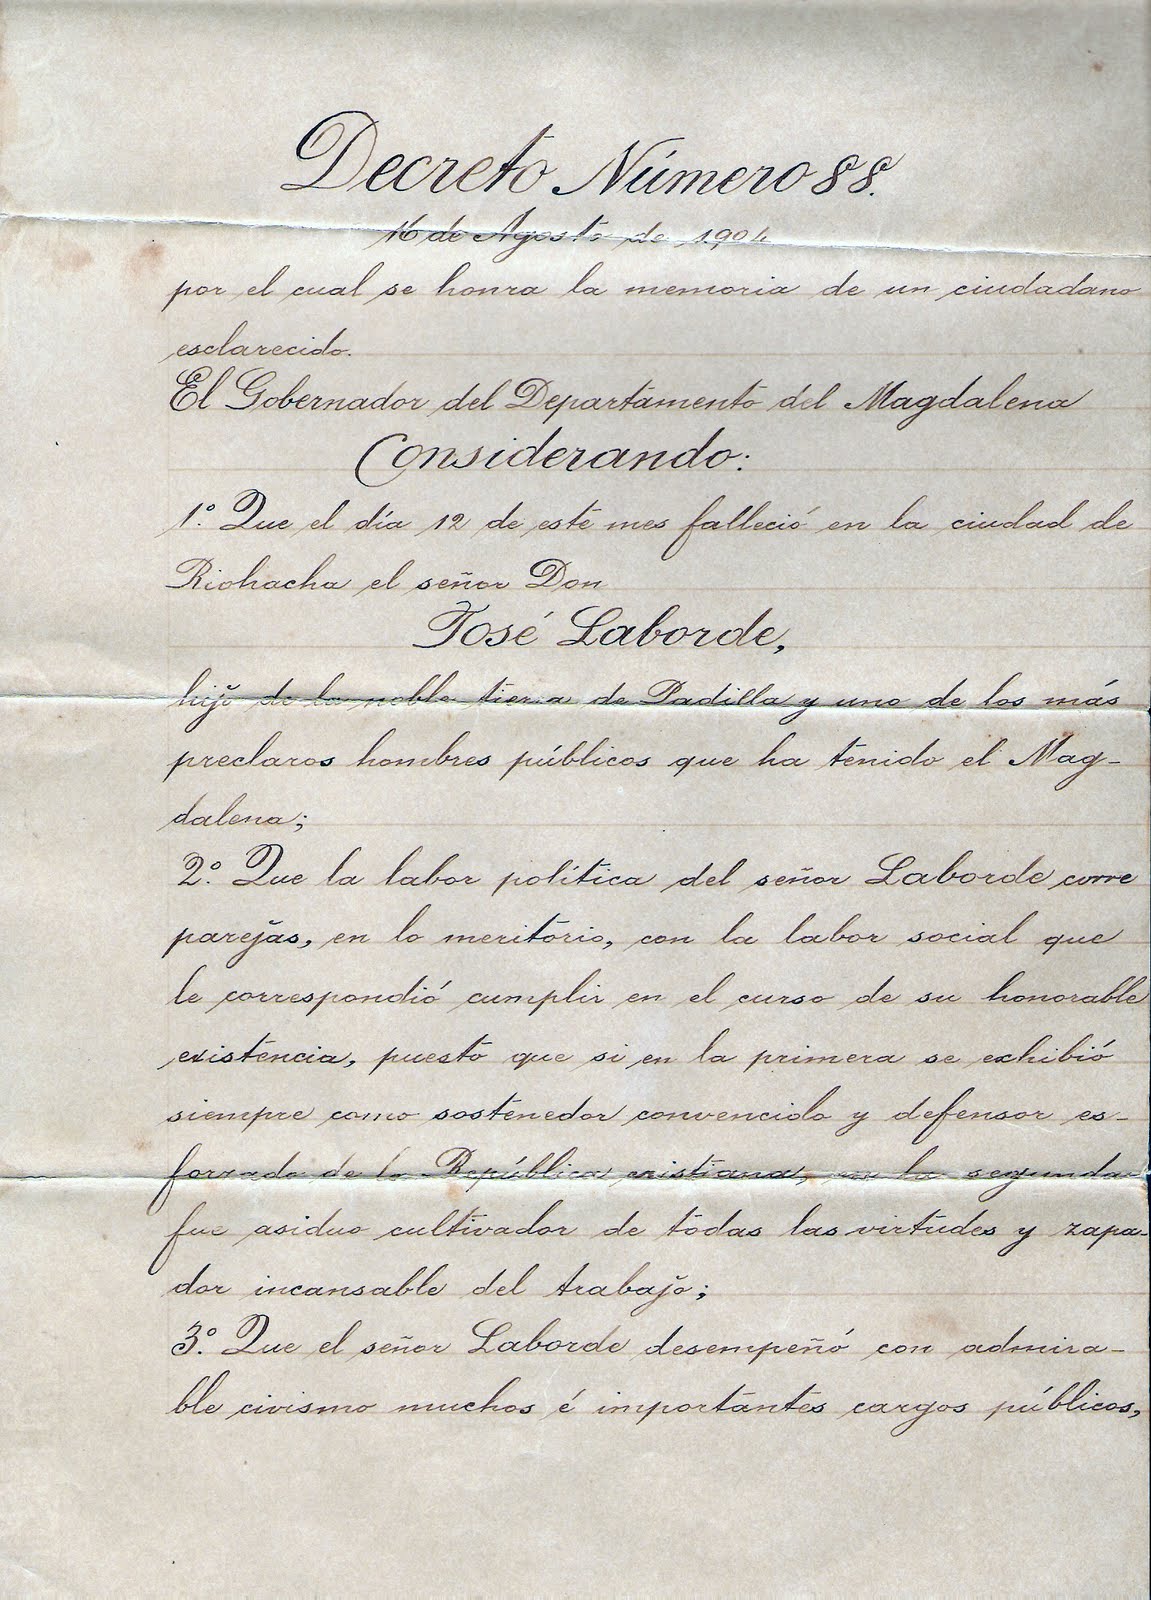 Decreto Número 88.
16 de Agosto de 1904
por el cual se honra la memoria de un ciudadano
esclarecido.
El Gobernador del Departamento del Magdalena
Considerando:
1º. Que el día 12 de este mes falleció en la ciudad de
Riohacha el señor Don
José Laborde,
hijo de la noble tierra de Padilla y uno de los más
preclaros hombres públicos que ha tenido el Mag-
dalena;
2º. Que la labor política del señor Laborde corre
parejas, en lo meritorio, con la labor social que
le correspondió cumplir en el curso de su honorable
existencia, puesto que si en la primera se exhibió
siempre como sostenedor convencido y defensor es-
forzado de la República cristiana, en la segunda
fue asiduo cultivador de todas las virtudes y zapa-
dor incansable del trabajo;
3º. Que el señor Laborde desempeñó con admira-
ble civismo muchos é importantes cargos públicos,